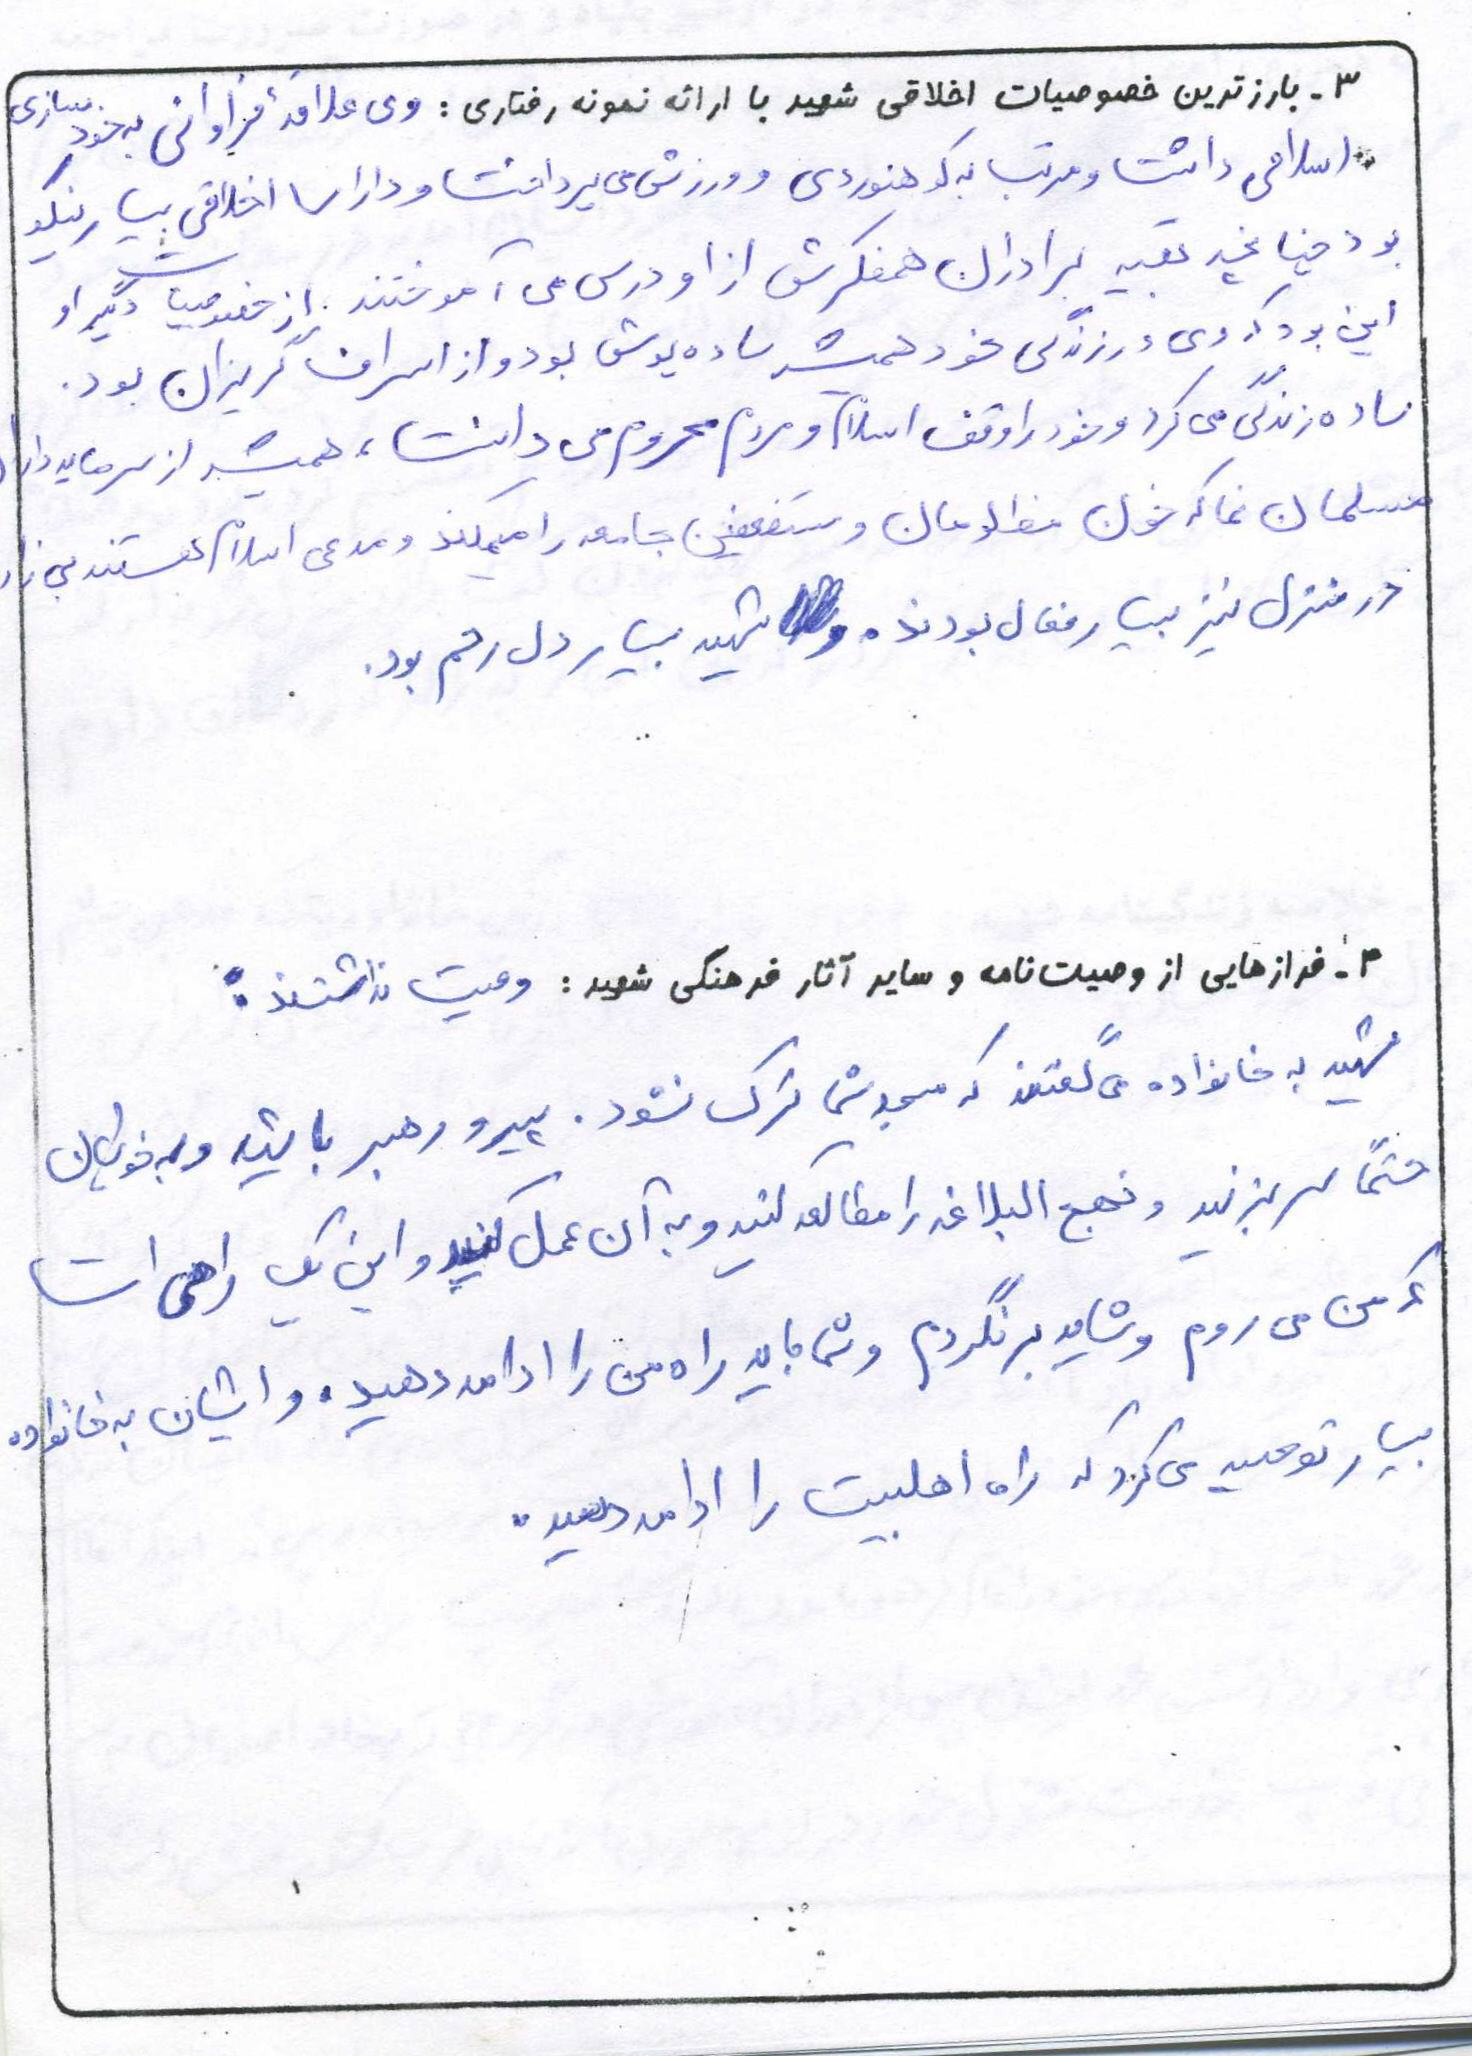 ۳- بارزترین خصوصیات اخلاقی شهید با ارائه نمونه رفتاری : وی علاقهٔ فراوانی به خودسازی
اسلامی داشت و مرتب به کوهنوردی و ورزش می پرداخت و دارای اخلاقی بسیار نیکو
بود چنانچه بقیه برادران همفکرش از او درس می آموختند . از خصوصیات دیگر او
این بود که وی در زندگی خود همیشه ساده پوش بود و از اسراف گریزان بود .
ساده زندگی می کرد و خود را وقف اسلام و مردم محروم می دانست ، همیشه از سرمایه داران
مسلمان نما که خون مظلومان و مستضعفین جامعه را میمکند و مدعی اسلام هستند بیزار
در منزل نیز بسیار فعال بودند . و شهید بسیار دل رحم بود .
۴- فرازهایی از وصیت‌نامه و سایر آثار فرهنگی شهید : وصیت نداشتند .
شهید به خانواده می گفتند که مسجد شما ترک نشود . پیرو رهبر باشید و به خواهران
حتماً سر بزنید و نهج البلاغه را مطالعه کنید و به آن عمل کنید و این یک راهی است
که من می روم و شاید برنگردم و شما باید راه من را ادامه دهید . و ایشان به خانواده
بسیار توصیه می کرد که راه اهلبیت را ادامه دهید .